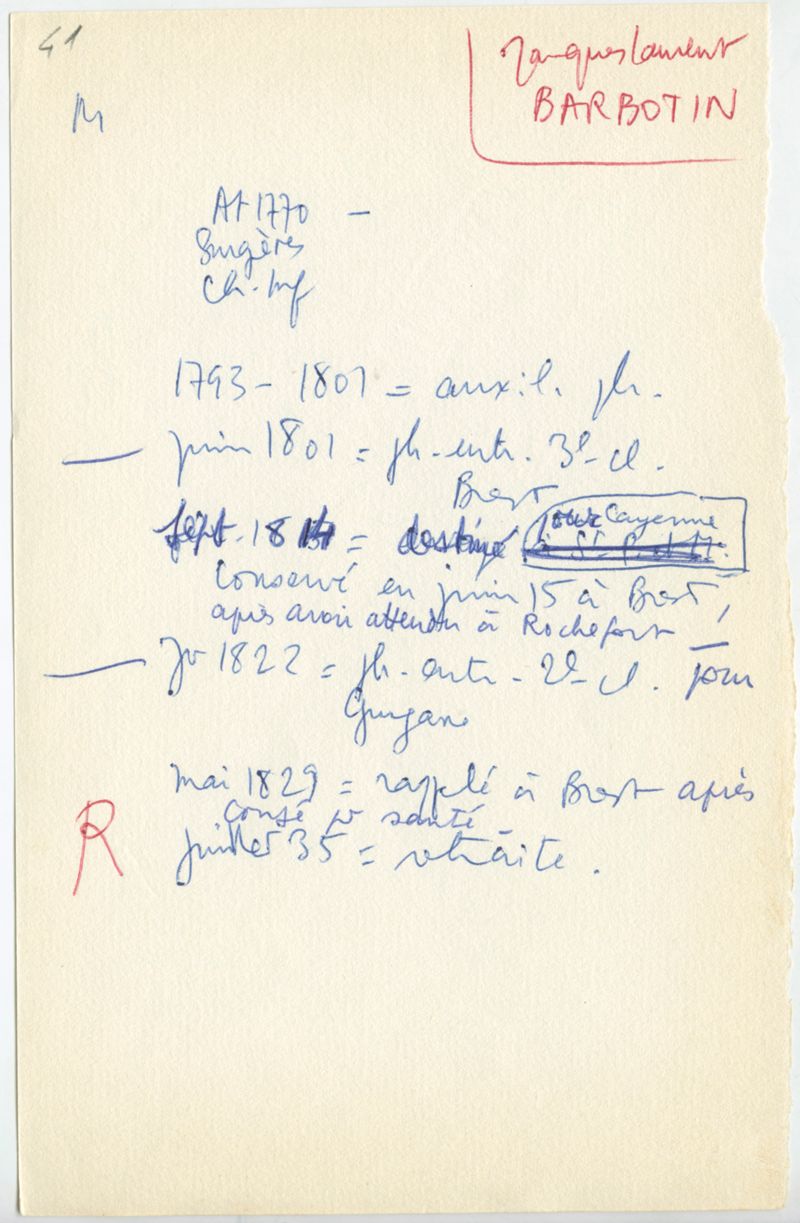 41
Jacques Laurent
BARBOTIN
M
At 1770 —
Surgères
Ch. Inf
1793 - 1801 = auxil. ph.
— juin 1801 = ph. entr. 3e cl.
Brest
Sept. 1814 = destiné pour Cayenne
à St P. et M.
Conservé en juin 15 à Brest,
après avoir attendu à Rochefort —
— Jv 1822 = ph. entr. 2e cl. pour
Guyane
mai 1829 = rappelé à Brest après
congé pr santé
R
juillet 35 = retraite.